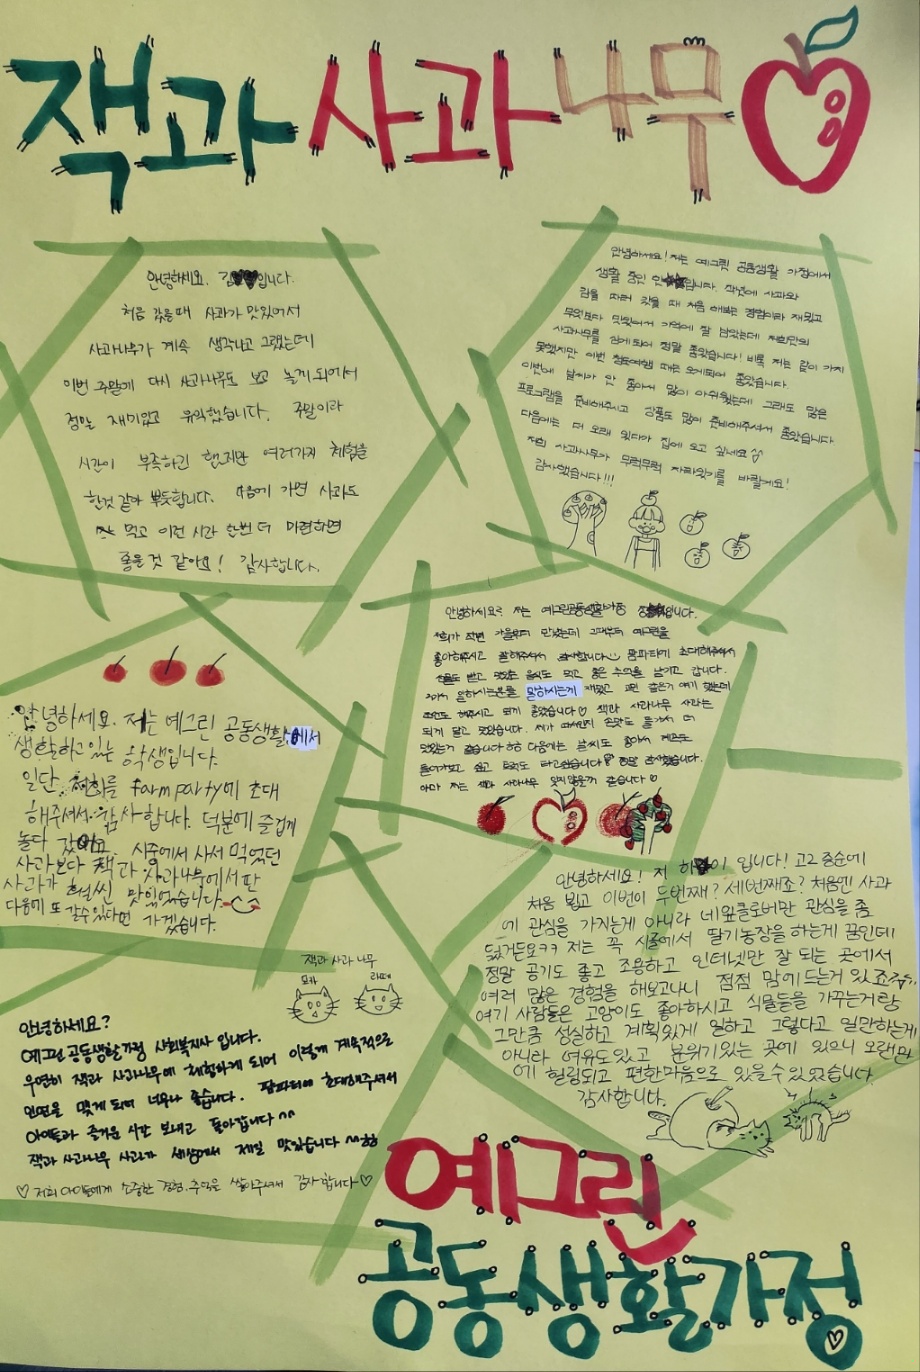 잭과 사과나무
안녕하세요. 김 입니다.
처음 갔을때 사과가 맛있어서
사과나무가 계속 생각나고 그랬는데
이번 주말에 다시 사과나무도 보고 놀게 되어서
정말 재미있고 유익했습니다. 주말이라
시간이 부족하긴 했지만 여러가지 체험을
한것 같아 뿌듯합니다. 다음에 가면 사과도
먹고 이런 시간 한번 더 마련하면
좋을것 같아요! 감사합니다.
안녕하세요! 저는 예그린 공동생활 가정에서
생활 중인 안 입니다. 작년에 사과와
감을 따러 갔을 때 처음 해보는 경험이라 재밌고
무엇보다 맛있어서 기억에 잘 남았는데 저희만의
사과나무를 심게되어 정말 좋았습니다! 비록 저는 같이 가지
못했지만 이번 때문 오게되어 좋았습니다.
이번에 날씨가 안 좋아서 많이 아쉬웠는데 그래도 많은
프로그램을 준비해주시고 상품도 많이 준비해주셔서 좋았습니다
다음에는 더 오래 있다아 집에 오고 싶네요
저희 사과나무가 무럭무럭 자라있기를 바랄게요!
감사했습니다!!!
안녕하세요? 저는 예그린공동생활가정 입니다.
저희가 작년 가을부터 만났는데 그때부터 예그린을
좋아해주시고 잘해주셔서 감사합니다 팜파티에 초대해주셔서
선물도 받고 맛있는 음식도 먹고 좋은 추억을 남기고 갑니다.
말하시는게 재밌고
해주시고 되게 좋았습니다♡ 잭과 사과나무 사과는
되게 달고 맛있습니다. 제가 따서인지 손맛도 들어서 더
맛있는거 같습니다 ㅎㅎ 다음에는 날씨도 좋아서
들어가보고 싶고 타고싶습니다 정말 감사했습니다.
아마 저는 잭과 사과나무 잊지않을거 같습니다♡
안녕하세요. 저는 예그린 공동생활에서
생활하고있는 학생입니다.
일단, 저희를 farm party에 초대
해주셔서 감사합니다. 덕분에 즐겁게
놀다 갔어요. 시중에서 사서 먹었던
사과보다 잭과 사과나무에서 판
사과가 훨씬 맛있었습니다.
다음에 또 갈수있다면 가겠습니다.
안녕하세요! 저 하 이 입니다! 고2 중순에
처음 뵙고 이번이 두번째? 세번째죠? 처음엔 사과
에 관심을 가지는게 아니라 네잎클로버만 관심을 좀
뒀거든요ㅋㅋ 저는 꼭 시골에서 딸기농장을 하는게 꿈인데
정말 공기도 좋고 조용하고 인터넷만 잘 되는 곳에서
여러 많은 경험을 해보고나니 점점 맘에 드는거 있죠
여기 사람들은 고양이도 좋아하시고 식물들을 가꾸는거랑
그만큼 성실하고 계획있게 일하고 그렇다고 일만하는게
아니라 여유도있고 분위기있는 곳에 있으니 오랜만
에 힐링되고 편한마음으로 있을수있었습니다.
감사합니다.
잭과 사과 나무
모카 라떼
안녕하세요?
예그린 공동생활가정 사회복지사 입니다.
우연히 잭과 사과나무에 체험하게 되어 이렇게 계속적으로
인연을 맺게 되어 너무나 좋습니다. 팜파티에 초대해주셔서
아이들과 즐거운 시간 보내고 돌아갑니다 ^^
잭과 사과나무 사과가 세상에서 제일 맛있습니다 ^^
♡ 저희 아이들에게 소중한 경험, 추억을 쌓아주셔서 감사합니다♡
예그린
공동생활가정